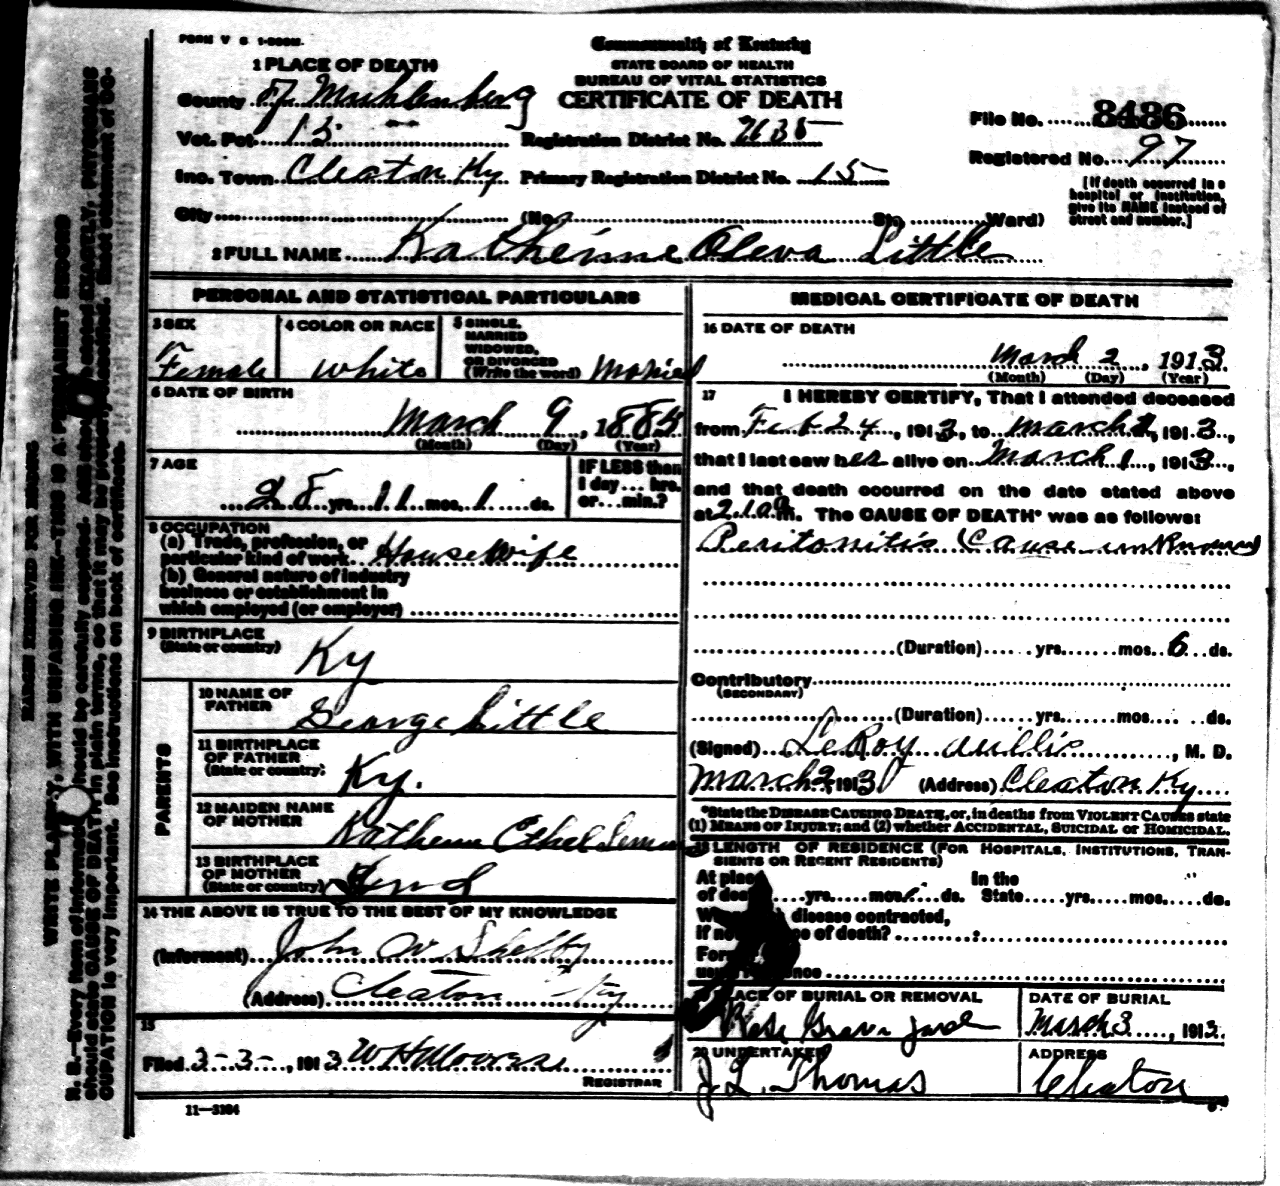 FORM V S 1-500M.
Commonwealth of Kentucky
STATE BOARD OF HEALTH
BUREAU OF VITAL STATISTICS
CERTIFICATE OF DEATH
1 PLACE OF DEATH
County Muhlenberg
Vot. Pct. 15
Registration District No.
Inc. Town Cleaton Ky
Primary Registration District No. 15
City (No. St. Ward)
File No. 8486
Registered No. 97
[If death occurred in a hospital or institution, give its NAME instead of street and number.]
2 FULL NAME Katherine Oleva Little
PERSONAL AND STATISTICAL PARTICULARS
3 SEX
Female
4 COLOR OR RACE
White
5 SINGLE, MARRIED WIDOWED, OR DIVORCED (Write the word) Married
6 DATE OF BIRTH
March 9, 1885
(Month) (Day) (Year)
7 AGE
28 yrs. 11 mos. 1 ds.
IF LESS than 1 day ... hrs. or ... min.?
8 OCCUPATION
(a) Trade, profession, or
particular kind of work Housewife
(b) General nature of industry
business or establishment in
which employed (or employer)
9 BIRTHPLACE
(State or country)
Ky
PARENTS
10 NAME OF FATHER
George Little
11 BIRTHPLACE OF FATHER
(State or country)
Ky.
12 MAIDEN NAME OF MOTHER
Ethel
13 BIRTHPLACE OF MOTHER
(State or country)
14 THE ABOVE IS TRUE TO THE BEST OF MY KNOWLEDGE
(Informant) John W Shelby
(Address) Cleaton Ky
15
Filed 3-3-, 1913
REGISTRAR
11—3184
MEDICAL CERTIFICATE OF DEATH
16 DATE OF DEATH
March 2, 1913
(Month) (Day) (Year)
17 I HEREBY CERTIFY, That I attended deceased
from Feb 24, 1913, to March 2, 1913,
that I last saw her alive on March 1, 1913,
and that death occurred on the date stated above
at m. The CAUSE OF DEATH* was as follows:
Peritonitis Cause unknown
(Duration) yrs. mos. 6 ds.
Contributory
(SECONDARY)
(Duration) yrs. mos. ds.
(Signed) LeRoy Willis, M. D.
March 2, 1913 (Address) Cleaton Ky
*State the DISEASE CAUSING DEATH, or, in deaths from VIOLENT CAUSES state
(1) MEANS OF INJURY; and (2) whether ACCIDENTAL, SUICIDAL or HOMICIDAL.
18 LENGTH OF RESIDENCE (FOR HOSPITALS, INSTITUTIONS, TRANSIENTS OR RECENT RESIDENTS)
At place In the
of death yrs. mos. ds. State yrs. mos. ds.
disease contracted,
if not of death?
19 PLACE OF BURIAL OR REMOVAL
Rose Grave yard
DATE OF BURIAL
March 3, 1913
20 UNDERTAKER
J L. Thomas
ADDRESS
Cleaton
MARGIN RESERVED FOR BINDING
WRITE PLAINLY, WITH UNFADING INK—THIS IS A PERMANENT RECORD
N. B.—Every item of information should be carefully supplied. AGE should be stated EXACTLY. PHYSICIANS
should state CAUSE OF DEATH in plain terms, so that it may be properly classified. Exact statement of OC-
CUPATION is very important. See instructions on back of certificate.